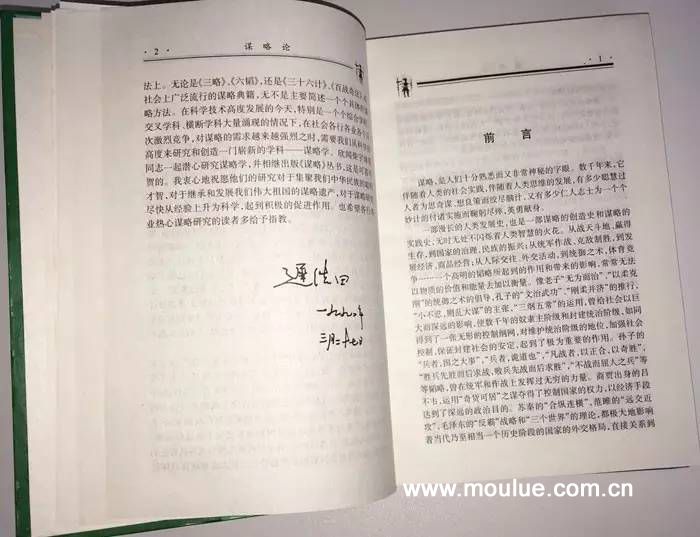 · 2 ·
谋略论
法上。无论是《三略》、《六韬》,还是《三十六计》、《百战奇法》,或
社会上广泛流行的谋略典籍,无不是主要简述一个个具体的
略方法。在科学技术高度发展的今天,特别是一个个综合学科、
交叉学科、横断学科大量涌现的情况下,在社会各行各业各个层
次激烈竞争,对谋略的需求越来越强烈之时,需要我们从科学的
高度来研究和创造一门崭新的学科——谋略学。欣闻柴宇球
同志一起潜心研究谋略学,并相继出版《谋略》丛书,这是可喜可
贺的。我衷心地祝愿他们的研究对于集聚我们中华民族的聪明
才智,对于继承和发展我们伟大祖国的谋略遗产,对于谋略研究
尽快从经验上升为科学,起到积极的促进作用。也希望各行各
业热心谋略研究的读者多给予指教。
迟浩田
一九九〇年
三月二十七日
· 1 ·
前言
谋略,是人们十分熟悉而又非常神秘的字眼。数千年来,它
伴随着人类的社会实践,伴随着人类思维的发展,有多少聪慧过
人者为思奇谋、想良策而绞尽脑汁,又有多少仁人志士为一个个
妙计的付诸实施而鞠躬尽瘁,英勇献身。
一部漫长的人类发展史,也是一部谋略的创造史和谋略的
实践史;无时无处不闪烁着人类智慧的火花。从战天斗地,赢得
生存,到国家的治理,民族的振兴;从统军作战,克敌制胜,到发
展经济、商品经营;从人际交往、外交活动,到统御之术,体育竞
争——一个高明的韬略所起到的作用和带来的影响,常常无法
以物质的价值和能量去加以衡量。像老子“无为而治”,“以柔克
刚”的统御之术的倡导,孔子的“文治武功”、“刚柔并济”的推行,
“小不忍,则乱大谋”的主张,“三纲五常”的运用,曾给社会以巨
大而深远的影响,使数千年的奴隶主阶级和封建统治阶级,如同
得到了一张无形的控制纲网,对维护统治阶级的地位,加强社会
控制,保证封建社会的安定,起到了极为重要的作用。孙子的
“兵者,国之大事”,“兵者,诡道也”,“凡战者,以正合,以奇胜”,
“胜兵先胜而后求战,败兵先战而后求胜”,“不战而屈人之兵”等
等韬略,曾在统军和作战上发挥过无穷的力量。商贾出身的吕
不韦,运用“奇货可居”之谋夺得了控制国家的权力,以经济手段
达到了深远的政治目的。苏秦的“合纵连横”、范雎的“远交近
攻”,毛泽东的“反霸”战略和“三个世界”的理论,都极大地影响
着当代乃至相当一个历史阶段的国家的外交格局,直接关系到
www.moulue.com.cn